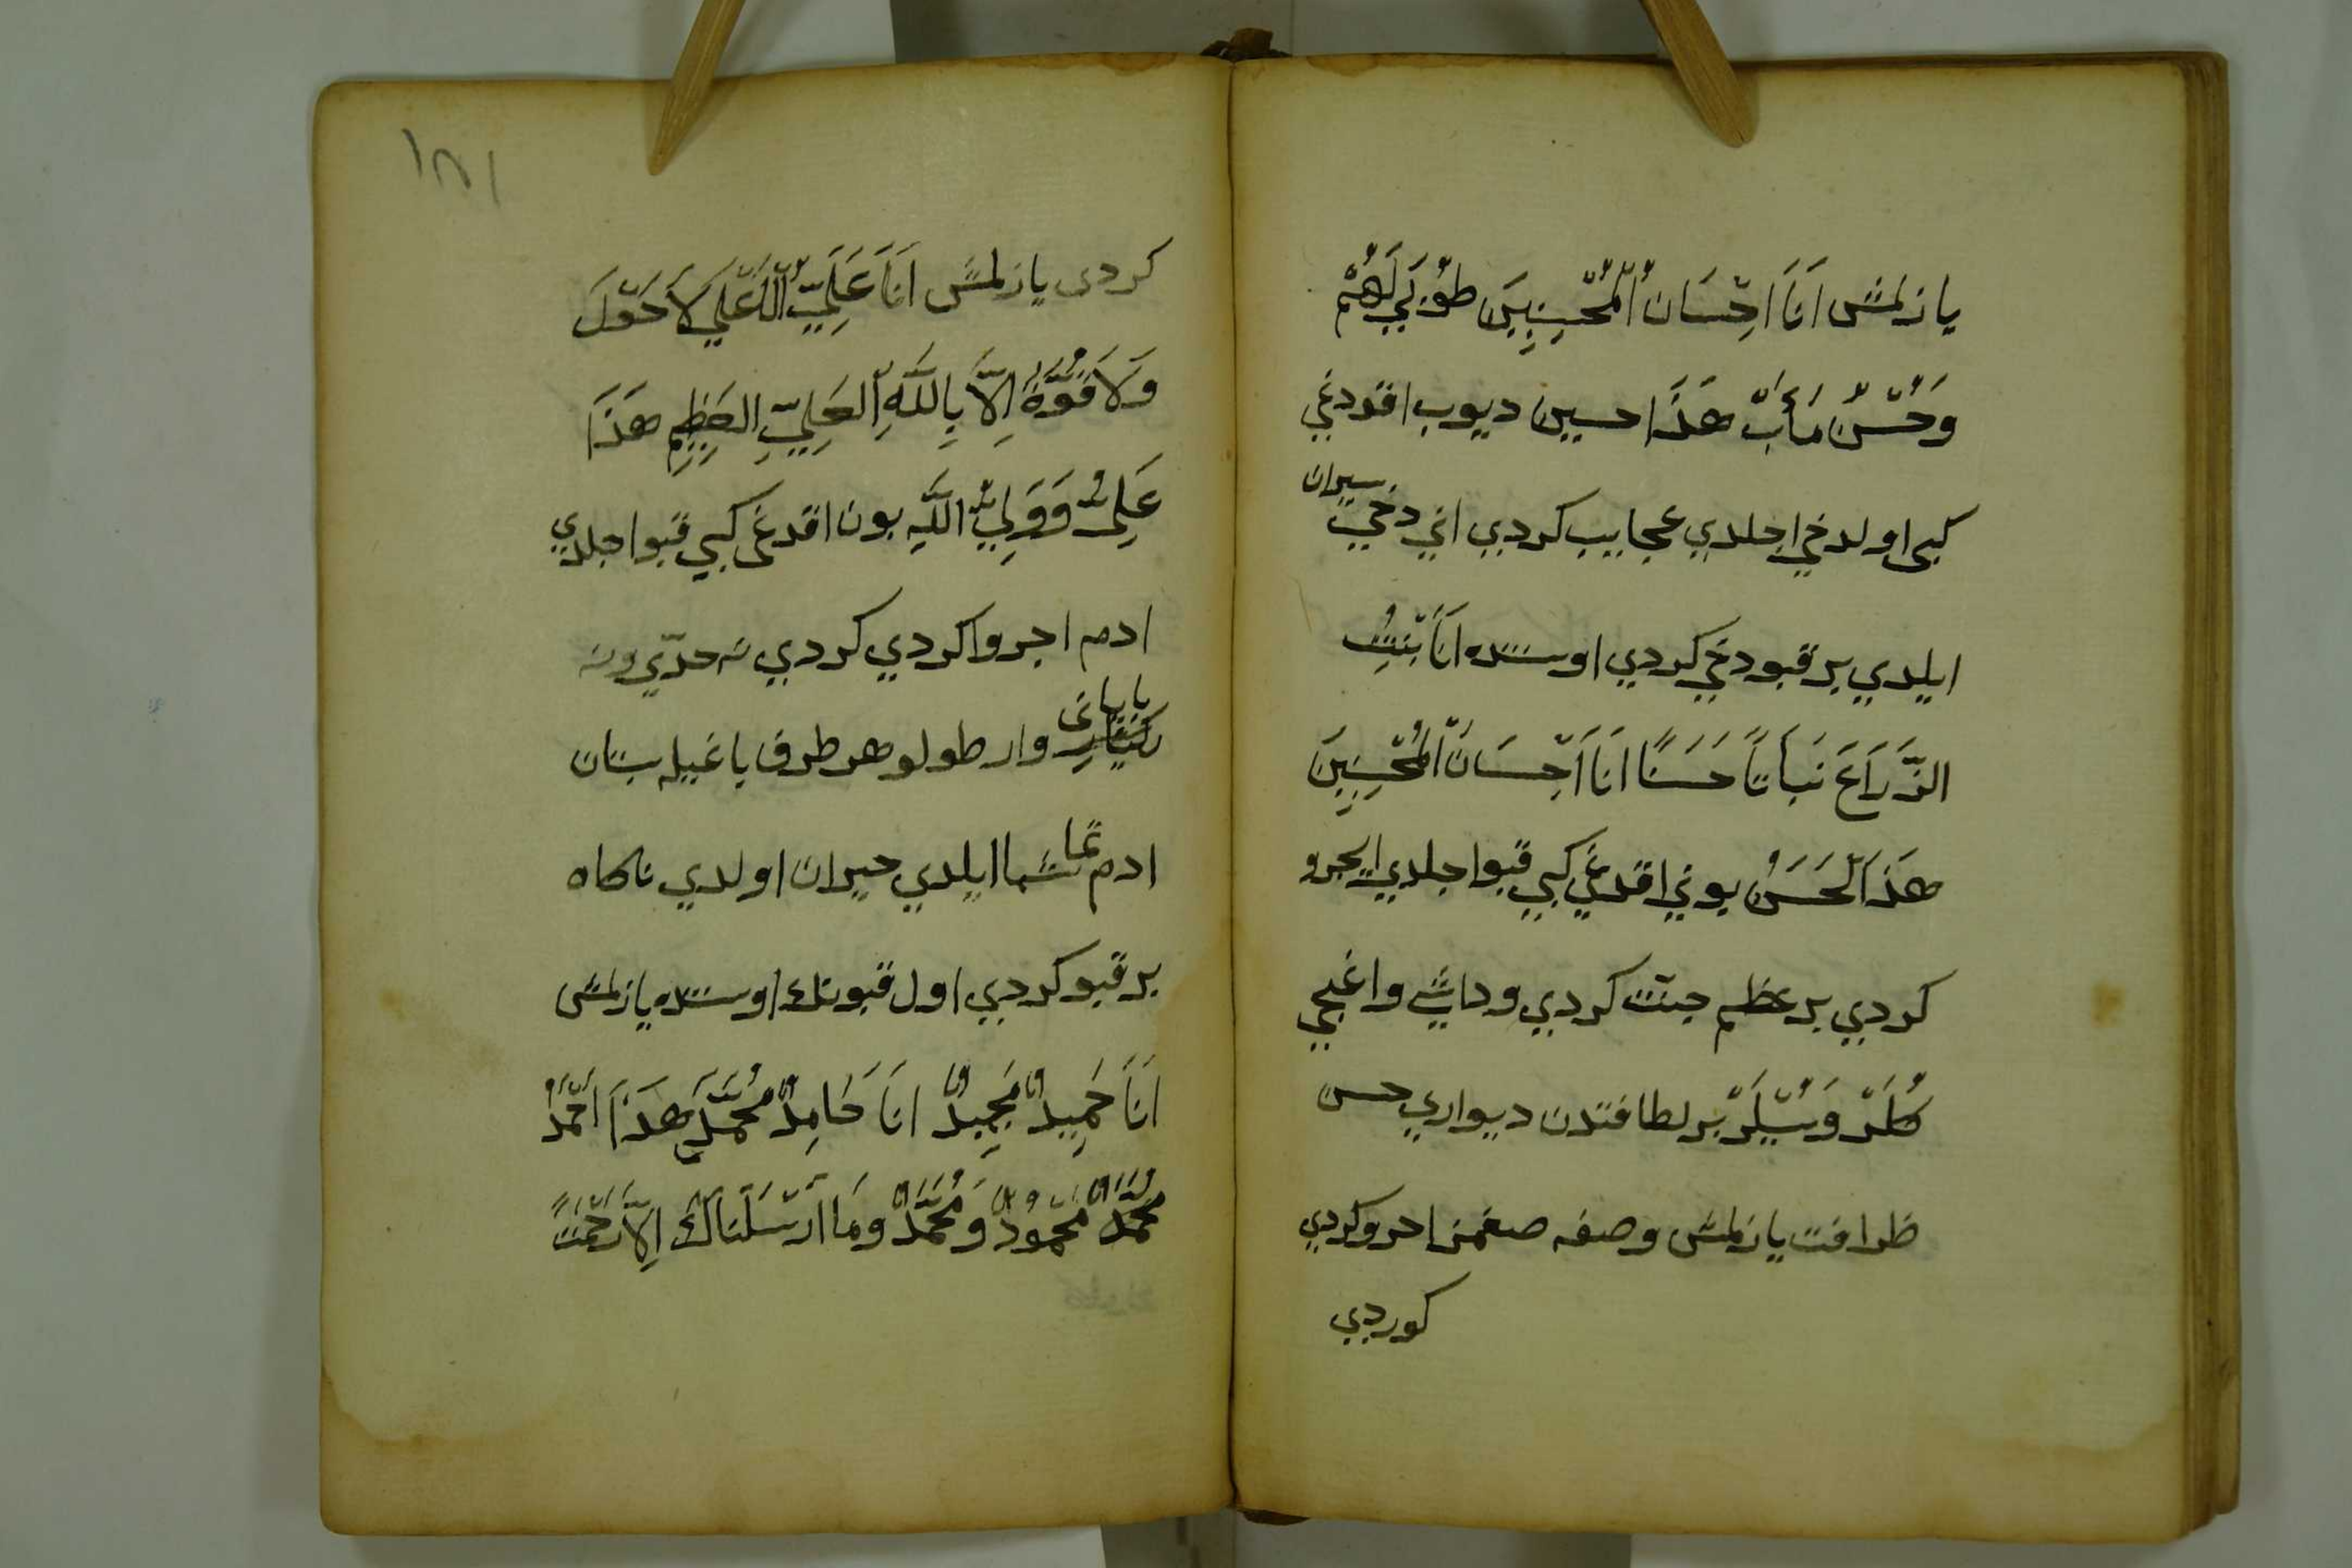 يازلمش اَنَا اِحْسَان اُلْمُحْسِنِينَ طُوبَي لَهُمْ
وَحُسْنُ مَأَبْ هَذَا حسين ديوب اقودغي
كبى اولدخي اجلدي عجايب كردي اني دخي سيران
ايلدي بر قبو دخي كردي اوستنده اَنَا بَنْتِتُ
الزَّرَاعَ نَبَاتًا حَسَنًا اَنَا اَحْسَانَ اُلْمُحْسِنِينَ
هَذَا الْحَسَنُ بوني اقدغي كبي قبو اجلدي ايجرو
كردي بر عظيم جنت كردي وداشي واغجي
كُلَرْ وَسُنْبُلَرْ بر لطافتدن ديواري حسن
ظرافت يازلمش وصفه صغمز اجرو كردي
كوردي
١٨١
كردى يازلمش اَنَا عَلَيُّ الْعَلَي لاَحَوْلَ
وَلاَقُوَّةَ اِلاَّ بِاللَّهِ الْعَلِيِّ الْعَظِيمِ هَذَا
عَلِىُّ وَوَلِيُّ اللَّهِ بون اقدغى كبي قبو اجلدي
ادم اجروا كردي كردي نه حدّي ونه
باياني وار طولو هر طرف باغيله بستان
ادم تماشا ايلدي حيران اولدي ناكاه
بر قبو كردي اول قبونك اوستنده يازلمش
اَنَا حَمِيدٌ مَجِيدٌ اَنَا حَامِدٌ مُحَمَّدٍ هَذَا اَحْمَدُ
مُحَمَّدٌ مَحْمُودٌ وَمُحَمَّدٌ وَمَا اَرْسَلْنَاكَ اِلاَّ رَحْمَتً